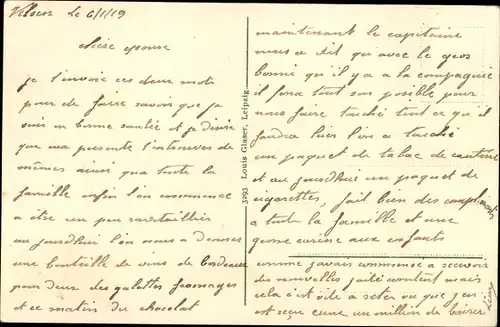 Velsen le 6/1/19
chère épouse
je t'invoie ces deux mots
pour de faire savoir que je
suis en bonne santié et je desire
que ma presente t'introuves de
mêmes ainsi que toute la
famille enfin l'on commence
a être un peu ravitaillier
au jourdhui l'on nous a donner
une bouteille de vins de bordeaux
pour deux des galettes fromages
et ce matin du chocolat
3293 Louis Glaser, Leipzig.
maintenant le capitaine
nous a dit qui avec le gros
bonni que il y a a la compagnie
il fera tout son possible pour
nous faire touché tout ce qu'il
faudra hier l'on a touché
un paquet de tabac de cantine
et au jourdhui un paquet de
sigarettes, fait bien des compliments
a toute la famille et une
grosse bise aux enfants
comme javais commencé a recevoir
des nouvelles jaité contant mais
cela c'est vite a reter vu que j'en
est reçu cune un million de baiser